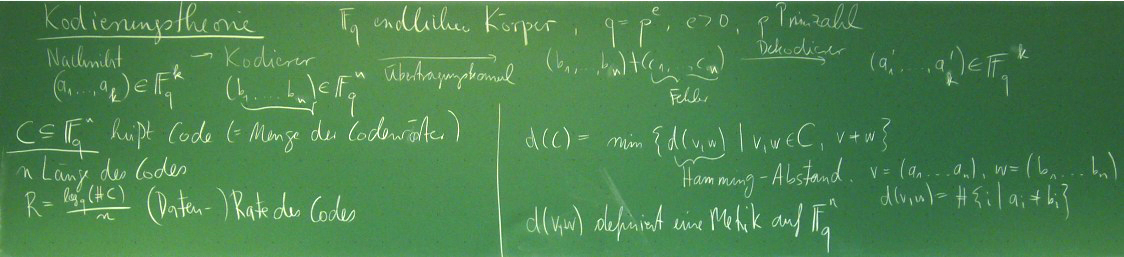 Kodierungstheorie   𝔽_q endlicher Körper, q = p^e, e>0, p Primzahl
Nachricht → Kodierer   Übertragungskanal   (b_1, ..., b_n) + (c_1, ..., c_n)   Dekodierer   (a'_1, ..., a'_k) ∈ 𝔽_q^k
(a_1, ..., a_k) ∈ 𝔽_q^k   (b_1, ..., b_n) ∈ 𝔽_q^n   Fehler
C ⊆ 𝔽_q^n heißt Code (= Menge der Codewörter)
n Länge des Codes
R = log_q(#C) / n   (Daten-) Rate des Codes
d(C) = min {d(v,w) | v,w ∈ C, v ≠ w}
Hamming-Abstand. v = (a_1 ... a_n), w = (b_1 ... b_n)
d(v,w) = #{i | a_i ≠ b_i}
d(v,w) definiert eine Metrik auf 𝔽_q^n